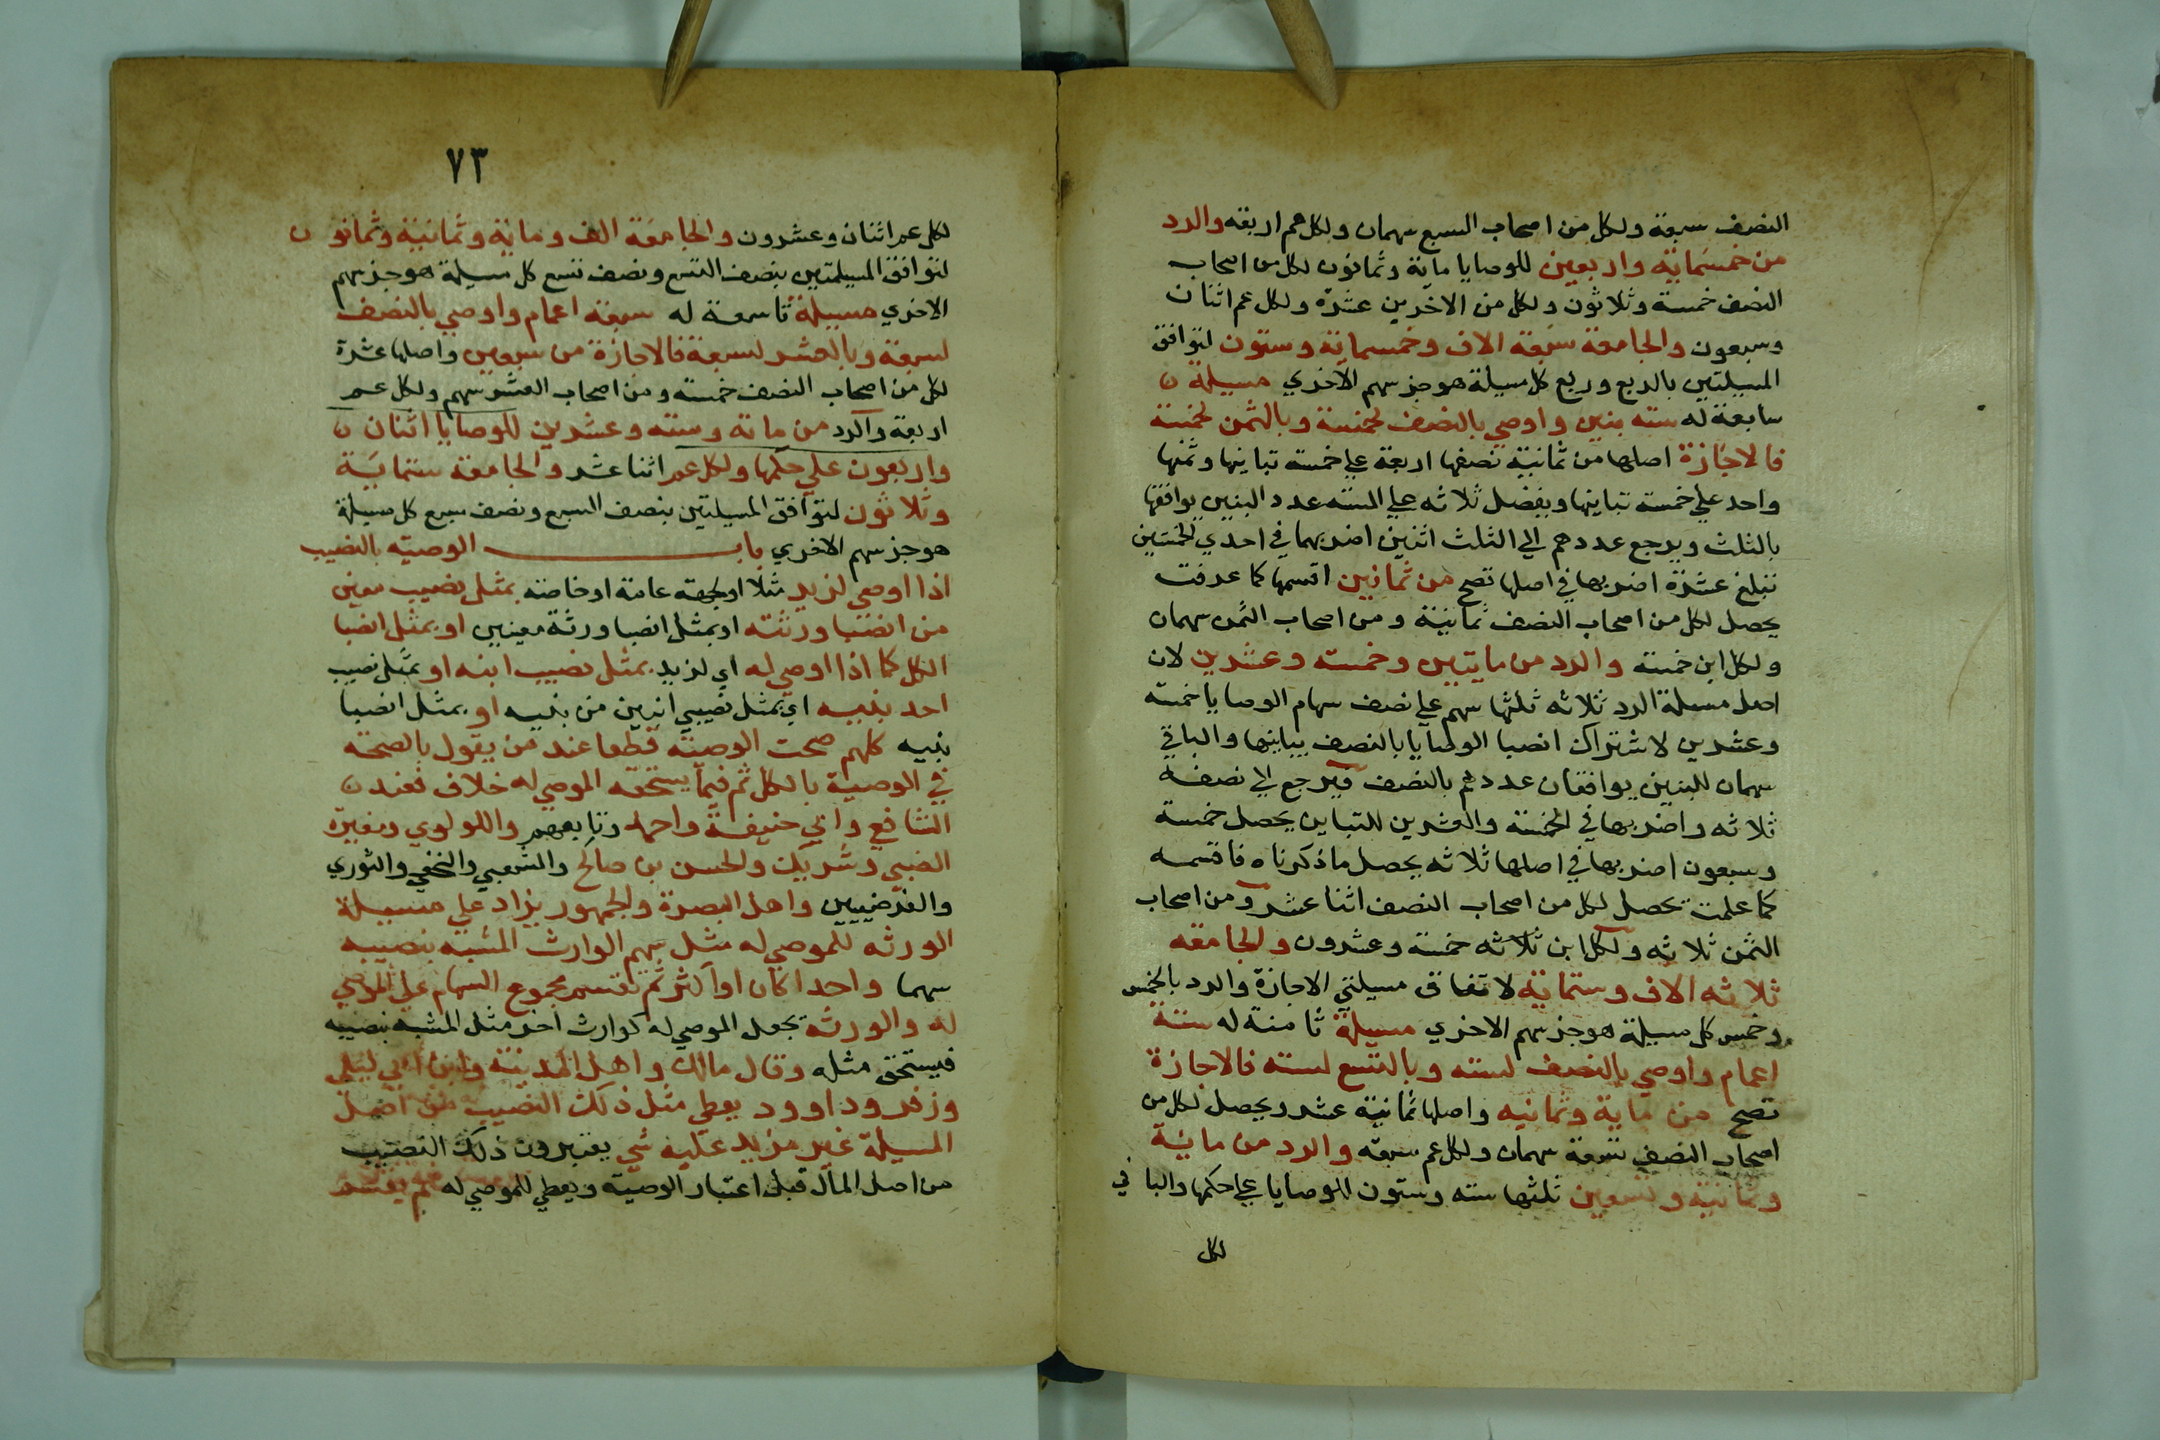 النصف سبعة ولكل من اصحاب السبع سهمان ولكل عم اربعة والرد
من خمسماية واربعين للوصايا ماية وثمانون لكل من اصحاب
النصف خمسة وثلاثون ولكل من الاخرين عشرة ولكل عم اثنان
وسبعون والجامعة سبعة الاف وخمسماية وستون لتوافق
المسيلتين بالربع وربع كل مسيلة هو جز سهم الاخري مسيلة
سابعة له ستة بنين واوصي بالنصف لخمسة وبالثمن لخمسة
فالاجازة اصلها من ثمانية نصفها اربعة علي خمسة تباينها وثمنها
واحد علي خمسة تباينها ويفضل ثلاثه علي الستة عدد البنين يوافقها
بالثلث ويرجع عددهم الي الثلث اثنين اضربهما في احدي الخمستين
تبلغ عشرة اضربها في اصلها تصح من ثمانين اقسمها كما عرفت
يحصل لكل من اصحاب النصف ثمانية ومن اصحاب الثمن سهمان
ولكل ابن خمسة والرد من مايتين وخمسة وعشرين لان
اصل مسيلة الرد ثلاثه ثلثها سهم علي نصف سهام الوصايا خمسة
وعشرين لاشتراك انصبا الوصايا بالنصف يباينها والباقي
سهمان للبنين يوافقان عددهم بالنصف فيرجع الي نصفه
ثلاثه واضربها في الخمسة والعشرين للتباين يحصل خمسة
وسبعون اضربها في اصلها ثلاثه يحصل ما ذكرناه فاقسمه
كما علمت يحصل لكل من اصحاب النصف اثنا عشر ومن اصحاب
الثمن ثلاثه ولكل ابن ثلاثه خمسة وعشرون والجامعه
ثلاثه الاف وستماية لاتفاق مسيلتي الاجازة والرد بالخمس
وخمس كل مسيلة هو جز سهم الاخري مسيلة ثامنة له ستة
اعمام واوصي بالنصف لسته وبالتسع لسته فالاجازة
تصح من ماية وثمانيه واصلها ثمانية عشر ويحصل لكل من
اصحاب النصف تسعة سهمان ولكل عم سبعة والرد من مائية
وثمانية وتسعين ثلثها سته وستون للوصايا علي حكمها والباقي
لكل
٧٣
لكل عم اثنان وعشرون والجامعة الف وماية وثمانية وثمانون
لتوافق المسيلتين بنصف التسع ونصف تسع كل مسيلة هو جز سهم
الاخري مسيلة تاسعة له سبعة اعمام واوصي بالنصف
لسبعة وبالعشر لسبعة فالاجازة من سبعين واصلها عشرة
لكل من اصحاب النصف خمسة ومن اصحاب العشر سهم ولكل عم
اربعة والرد من ماية وستة وعشرين للوصايا اثنان
واربعون علي حكمها ولكل عم اثنا عشر والجامعة ستماية
وثلاثون لتوافق المسيلتين بنصف السبع ونصف سبع كل مسيلة
هو جز سهم الاخري باب الوصية بالنصيب
اذا اوصي لزيد مثلا او لجهة عامة او خاصة بمثل نصيب معين
من انصبا ورثته او بمثل انصبا ورثة معينين او بمثل انصبا
الكل كما اذا اوصي له اي لزيد بمثل نصيب ابنه او بمثل نصيب
احد بنيه اي بمثل نصيبي اثنين من بنيه او بمثل انصبا
بنيه كلهم صحت الوصية قطعا عند من يقول بالصحة
في الوصية بالكل ثم فيما يستحقه الموصي له خلاف فعند
الشافعي وابي حنيفة واحمد وتابعهم واللولوي ومغيرة
الضبي وشريك والحسن بن صالح والشعبي والنخعي والثوري
والفرضيين واهل البصرة والجمهور يزاد علي مسيلة
الورثه للموصي له مثل سهم الوارث المشبه بنصيبه
سهما واحدا كان او اكثر ثم تقسم مجموع السهام علي الموصي
له والورثة يجعل الموصي له كوارث اخر مثل المشبه بنصيبه
فيستحق مثله وقال مالك واهل المدينة وابن ابي ليلي
وزفر وداوود يعطي مثل ذلك النصيب من اصل
المسيلة غير مزيد عليه شي يعتبرون ذلك النصيب
من اصل المال قبل اعتبار الوصية ويعطي للموصي له ثم يقسم